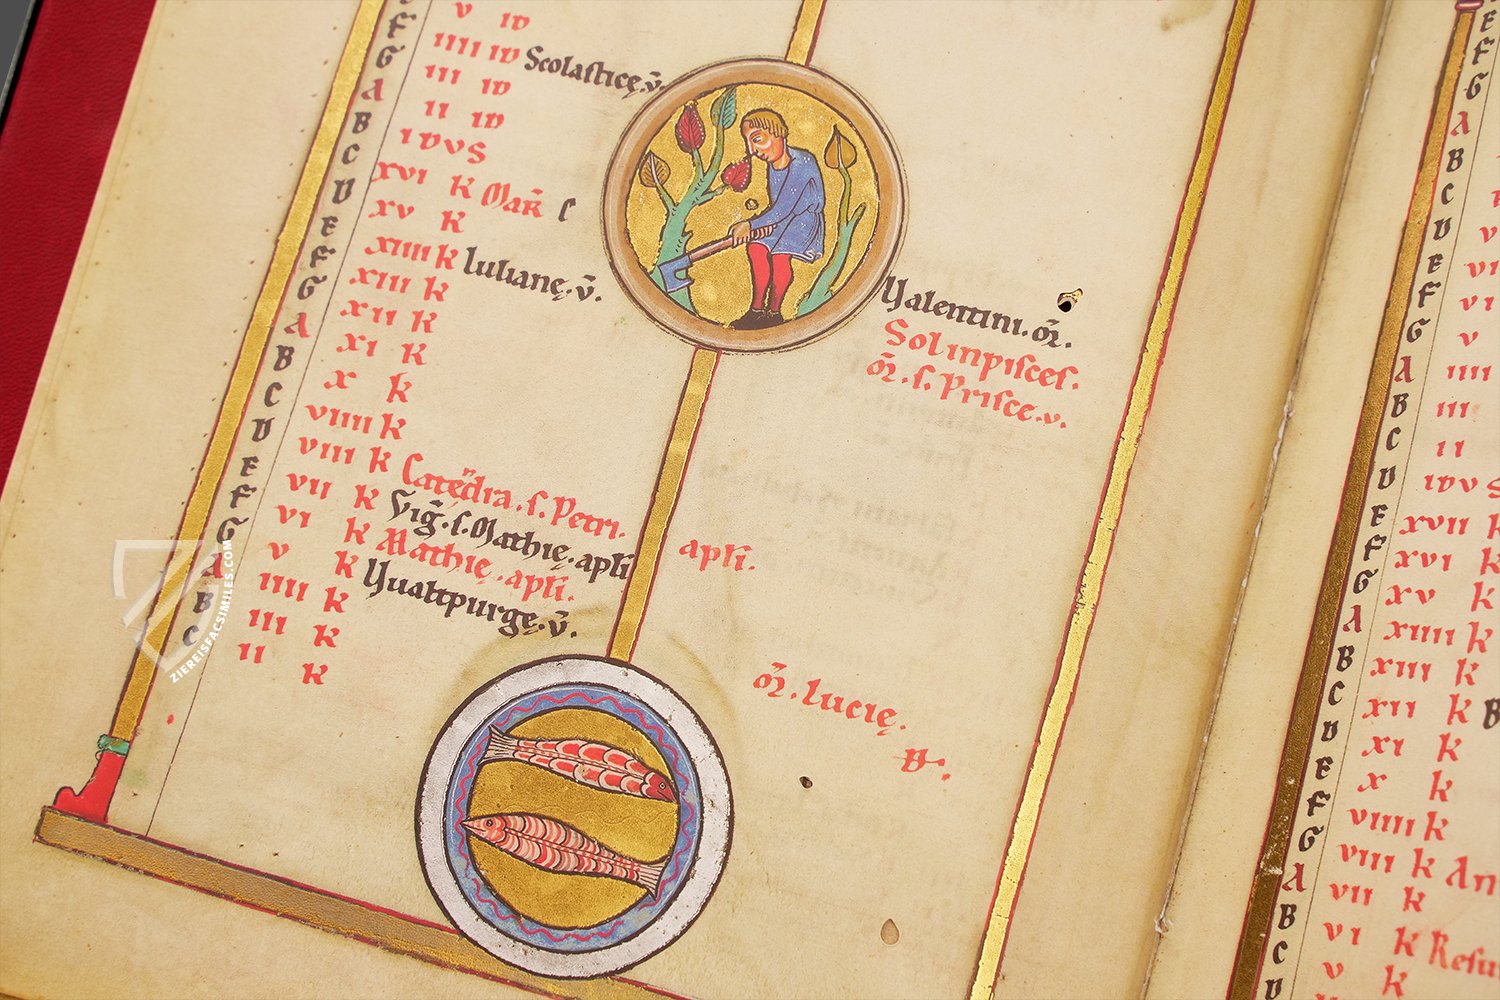 F V ID
G IIII ID Scolasticę. v̄.
A III ID
B II ID
C IDVS
D XVI k Mar̄
E XV k
F XIIII k Iulianę. v̄.
G XIII k
A XII k
B XI k
C X k
D VIIII k
E VIII k Cated̄ra. s. Petri.
F VII k Vig̅. s. Mathię. apli
G VI k Mathię. apli.
A V k Uualtpurgę. v̄.
B IIII k
C III k
II k
Valentini. m̄r.
Sol in pisces.
m̄r. s. Prisce. v.
apli.
m̄r. Lucię.
ZIEREISFACSIMILES.COM
E
F
G
A
B
C
D
E
F
G
A
B
C
D
E
F
G
A
B
C
D
E
F
G
A
B
C
D
V
VI
VI
V
IIII
III
II
IDVS
XVII k
XVI k
XV k
XIIII k
XIII k
XII k B
XI k
X k
VIIII k
VIII k An
VII k
VI k Resu
V k